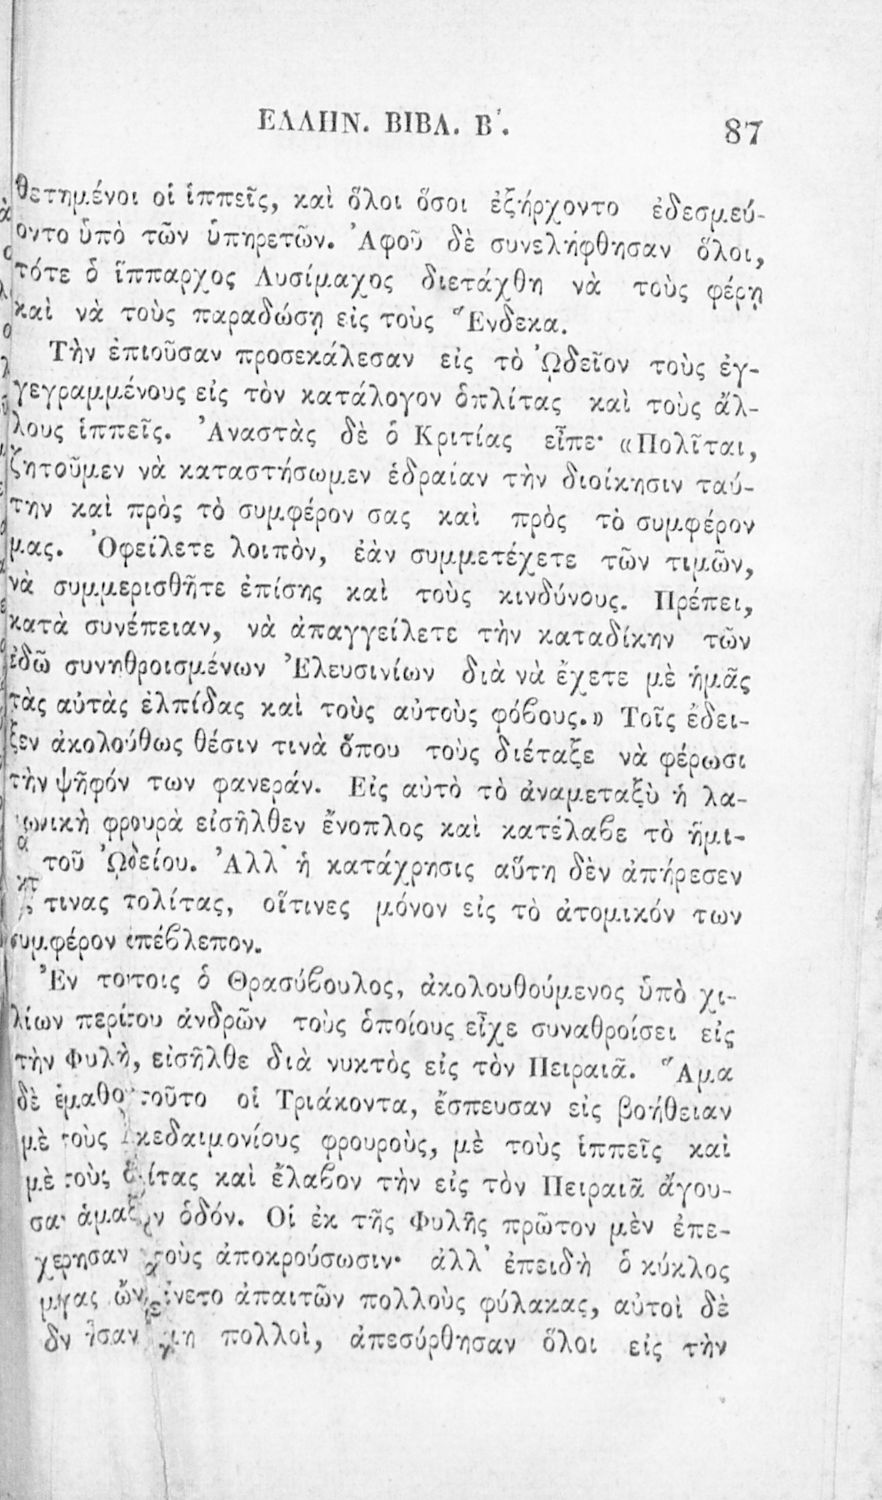 ΕΛΛΗΝ. ΒΙΒΛ. Β΄. 87
θετημένοι οἱ ἱππεῖς, καὶ ὅλοι ὅσοι ἐξήρχοντο ἐδεσμεύ-
οντο ὑπὸ τῶν ὑπηρετῶν. Ἀφοῦ δὲ συνελήφθησαν ὅλοι,
τότε ὁ ἵππαρχος Λυσίμαχος διετάχθη νὰ τοὺς φέρῃ
καὶ νὰ τοὺς παραδώσῃ εἰς τοὺς Ἕνδεκα.
Τὴν ἐπιοῦσαν προσεκάλεσαν εἰς τὸ Ὠδεῖον τοὺς ἐγ-
γεγραμμένους εἰς τὸν κατάλογον ὁπλίτας καὶ τοὺς ἄλ-
λους ἱππεῖς. Ἀναστὰς δὲ ὁ Κριτίας εἶπε· «Πολῖται,
ζητοῦμεν νὰ καταστήσωμεν ἑδραίαν τὴν διοίκησιν ταύ-
την καὶ πρὸς τὸ συμφέρον σας καὶ πρὸς τὸ συμφέρον
μας. Ὀφείλετε λοιπὸν, ἐὰν συμμετέχετε τῶν τιμῶν,
νὰ συμμερισθῆτε ἐπίσης καὶ τοὺς κινδύνους. Πρέπει,
κατὰ συνέπειαν, νὰ ἀπαγγείλετε τὴν καταδίκην τῶν
ἐδῶ συνηθροισμένων Ἐλευσινίων διὰ νὰ ἔχετε μὲ ἡμᾶς
τὰς αὐτὰς ἐλπίδας καὶ τοὺς αὐτοὺς φόβους.» Τοῖς ἔδει-
ξεν ἀκολούθως θέσιν τινὰ ὅπου τοὺς διέταξε νὰ φέρωσι
τὴν ψῆφόν των φανεράν. Εἰς αὐτὸ τὸ ἀναμεταξὺ ἡ λα-
ωνικὴ φρουρὰ εἰσῆλθεν ἔνοπλος καὶ κατέλαβε τὸ ἥμι-
τοῦ Ὠδείου. Ἀλλ᾽ ἡ κατάχρησις αὕτη δὲν ἀπήρεσεν
τινας πολίτας, οἵτινες μόνον εἰς τὸ ἀτομικόν των
συμφέρον ἐπέβλεπον.
Ἐν τούτοις ὁ Θρασύβουλος, ἀκολουθούμενος ὑπὸ χι-
λίων περίπου ἀνδρῶν τοὺς ὁποίους εἶχε συναθροίσει εἰς
τὴν Φυλὴ, εἰσῆλθε διὰ νυκτὸς εἰς τὸν Πειραιᾶ. Ἅμα
δὲ ἔμαθον τοῦτο οἱ Τριάκοντα, ἔσπευσαν εἰς βοήθειαν
μὲ τοὺς κεδαιμονίους φρουροὺς, μὲ τοὺς ἱππεῖς καὶ
μὲ τοὺς ίτας καὶ ἔλαβον τὴν εἰς τὸν Πειραιᾶ ἄγου-
σα ἁμαξ ν ὁδόν. Οἱ ἐκ τῆς Φυλῆς πρῶτον μὲν ἐπε-
χερησαν τοὺς ἀποκρούσωσιν· ἀλλ᾽ ἐπειδὴ ὁ κύκλος
μγας ὢν ίνετο ἀπαιτῶν πολλοὺς φύλακας, αὐτοὶ δὲ
δν ἦσαν πολλοὶ, ἀπεσύρθησαν ὅλοι εἰς τὴν